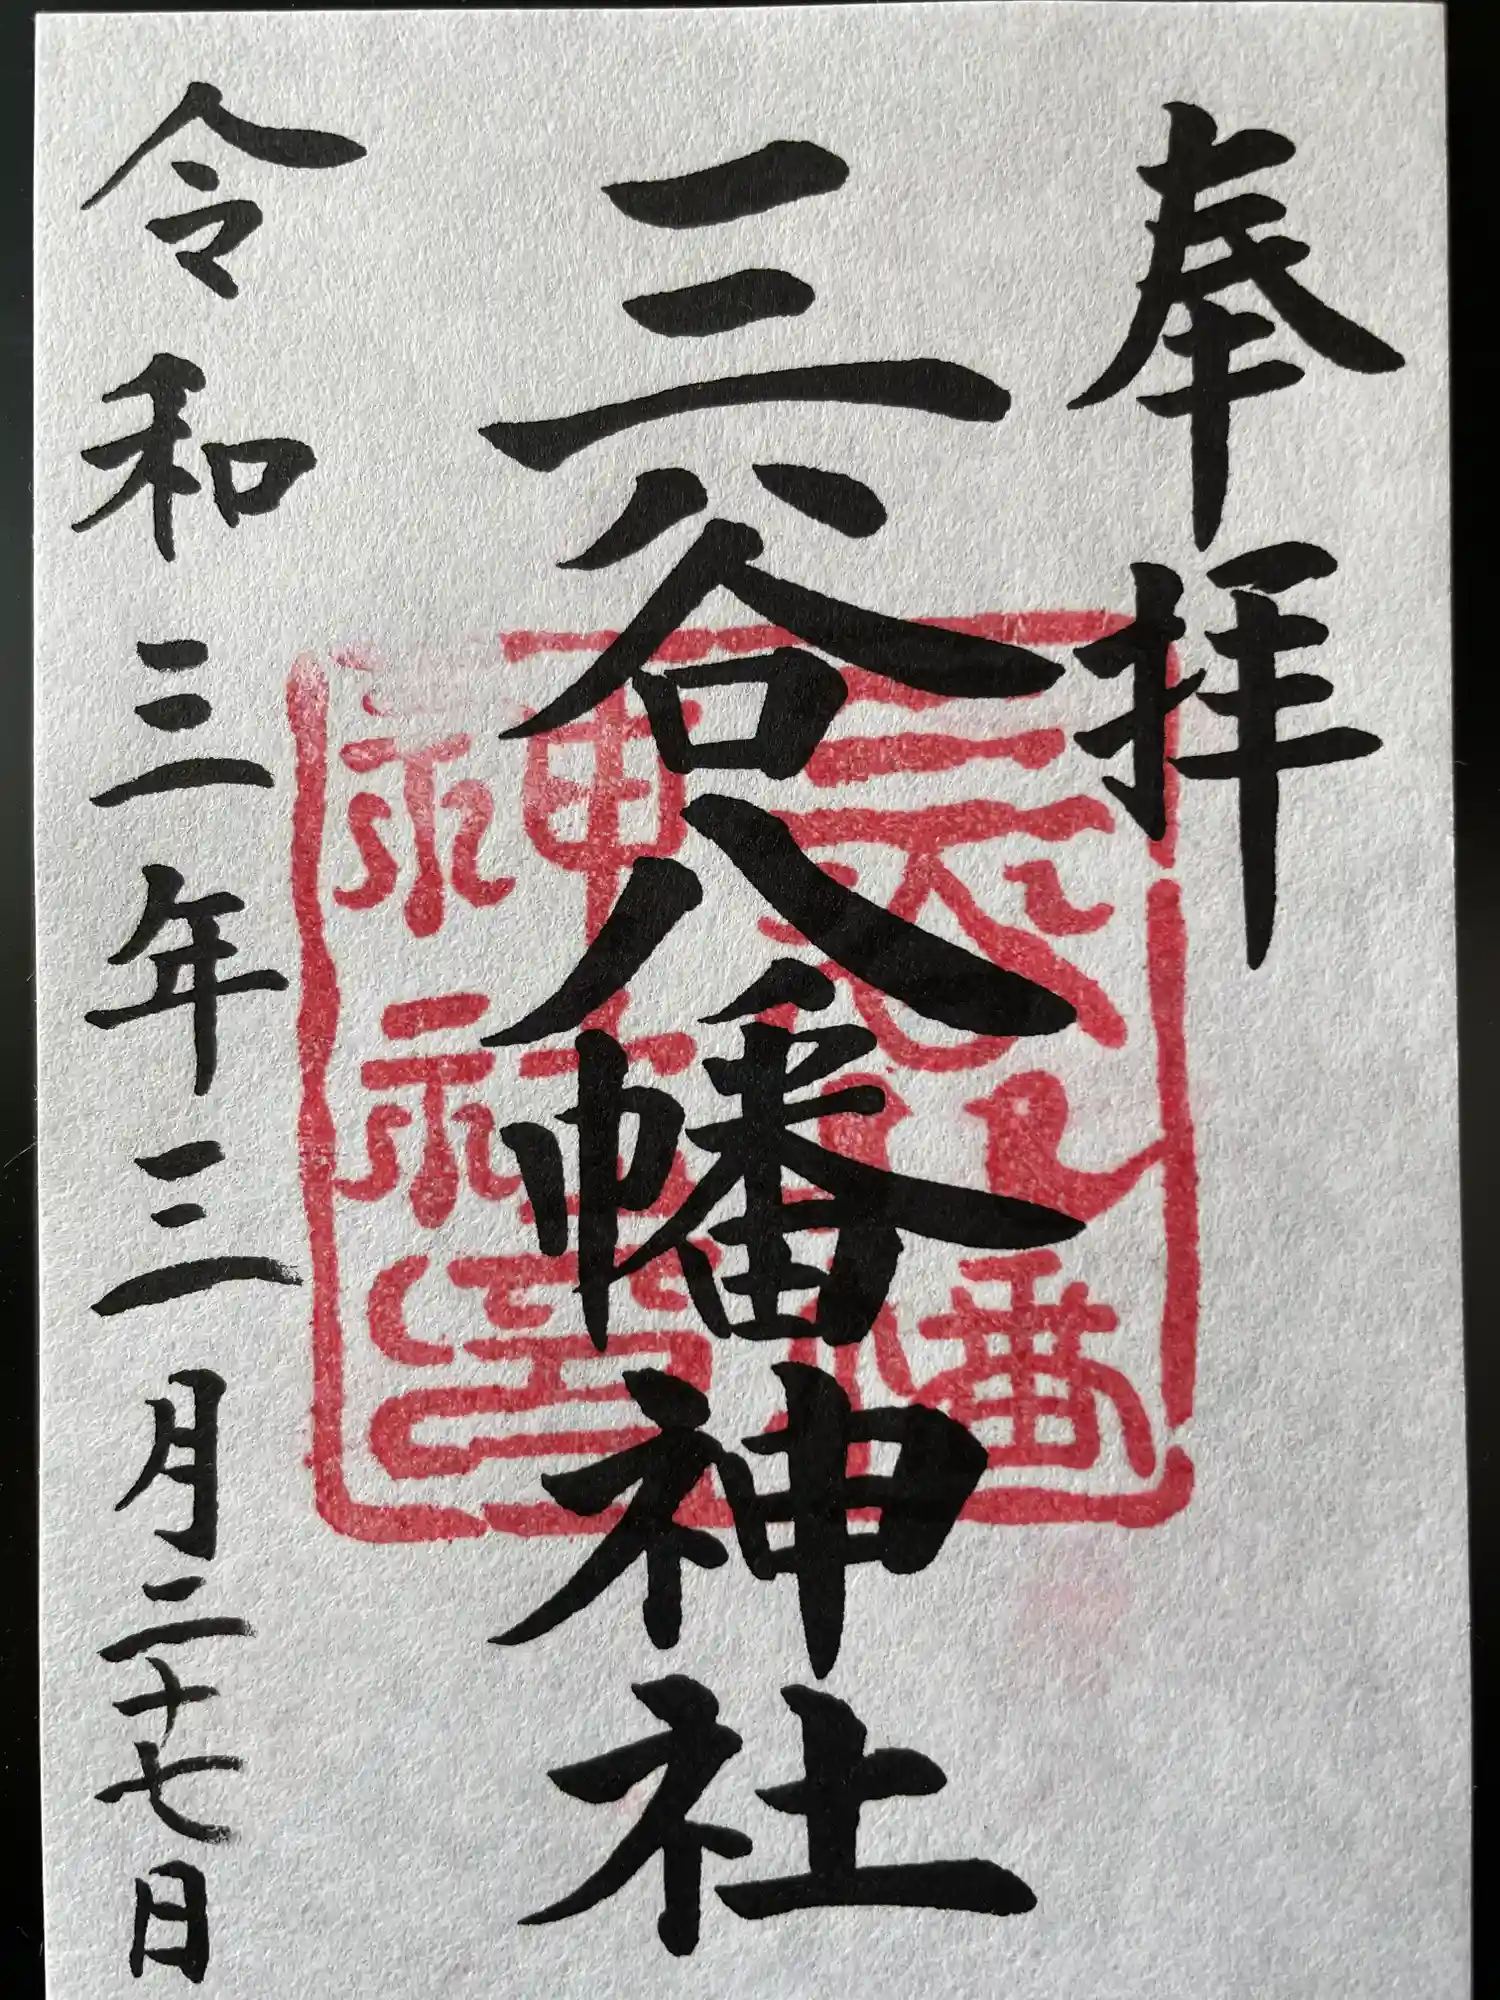 奉拝
三谷八幡神社
令和三年三月二十七日
三谷八幡
神社之印